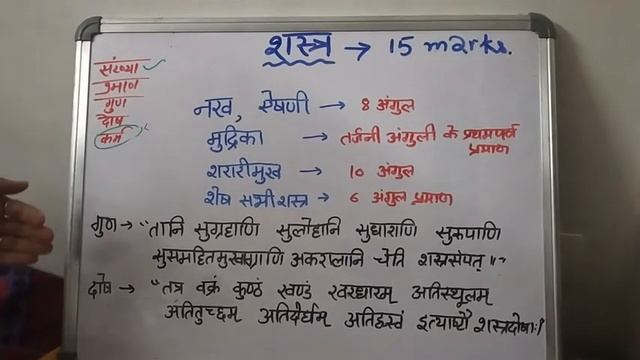 शस्त्र → 15 marks.
संख्या ✓
प्रमाण
गुण
दोष
कर्म
नख, ऐषणी → 8 अंगुल
मुद्रिका → तर्जनी अंगुली के प्रथमपर्व प्रमाण
शरारीमुख → 10 अंगुल
शेष सभी शस्त्र → 6 अंगुल प्रमाण
गुण → "तानि सुग्रहाणि सुलोहानि सुधाराणि सुरुपाणि
सुसमाहितमुखाग्राणि अकरालानि चेति शस्त्रसंपत् ॥"
दोष → "तत्र वक्रं कुण्ठं खण्डं खरधारम अतिस्थूलम
अतितुच्छम अतिदीर्घम अतिहस्वं इत्याष्टौ शस्त्रदोषाः।